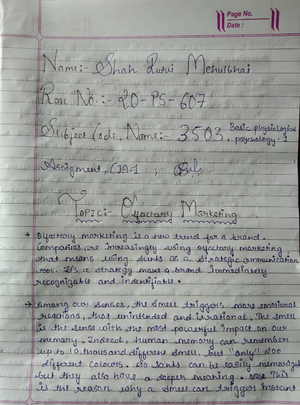 Page No.
Date :
Name:- Shah Rutvi Mehulbhai
Roll No.:- 20-PS-607
Subject Code, Name:- 3503, Basic physiological
psychology-1
Assignment, CIA-1,
TOPIC:- Olfactory Marketing.
→ Olfactory marketing is a new trend for a brand.
Companies are increasingly using olfactory marketing
that means using scents as a strategic communication
tool. It's a strategy make a brand immediately
recognizable and indentifiable.
→ Among our senses, the smell triggers more emotional
reactions, that unintended and irrational. The smell
is the sense with the most powerful impact on our
memory. Indeed, human memory can remember
up to 10 thousand different smell, but "only" 200
different colours. So scents can be easily memorized
but they also have a deeper meaning. This
is the reason why a smell can trigger instant